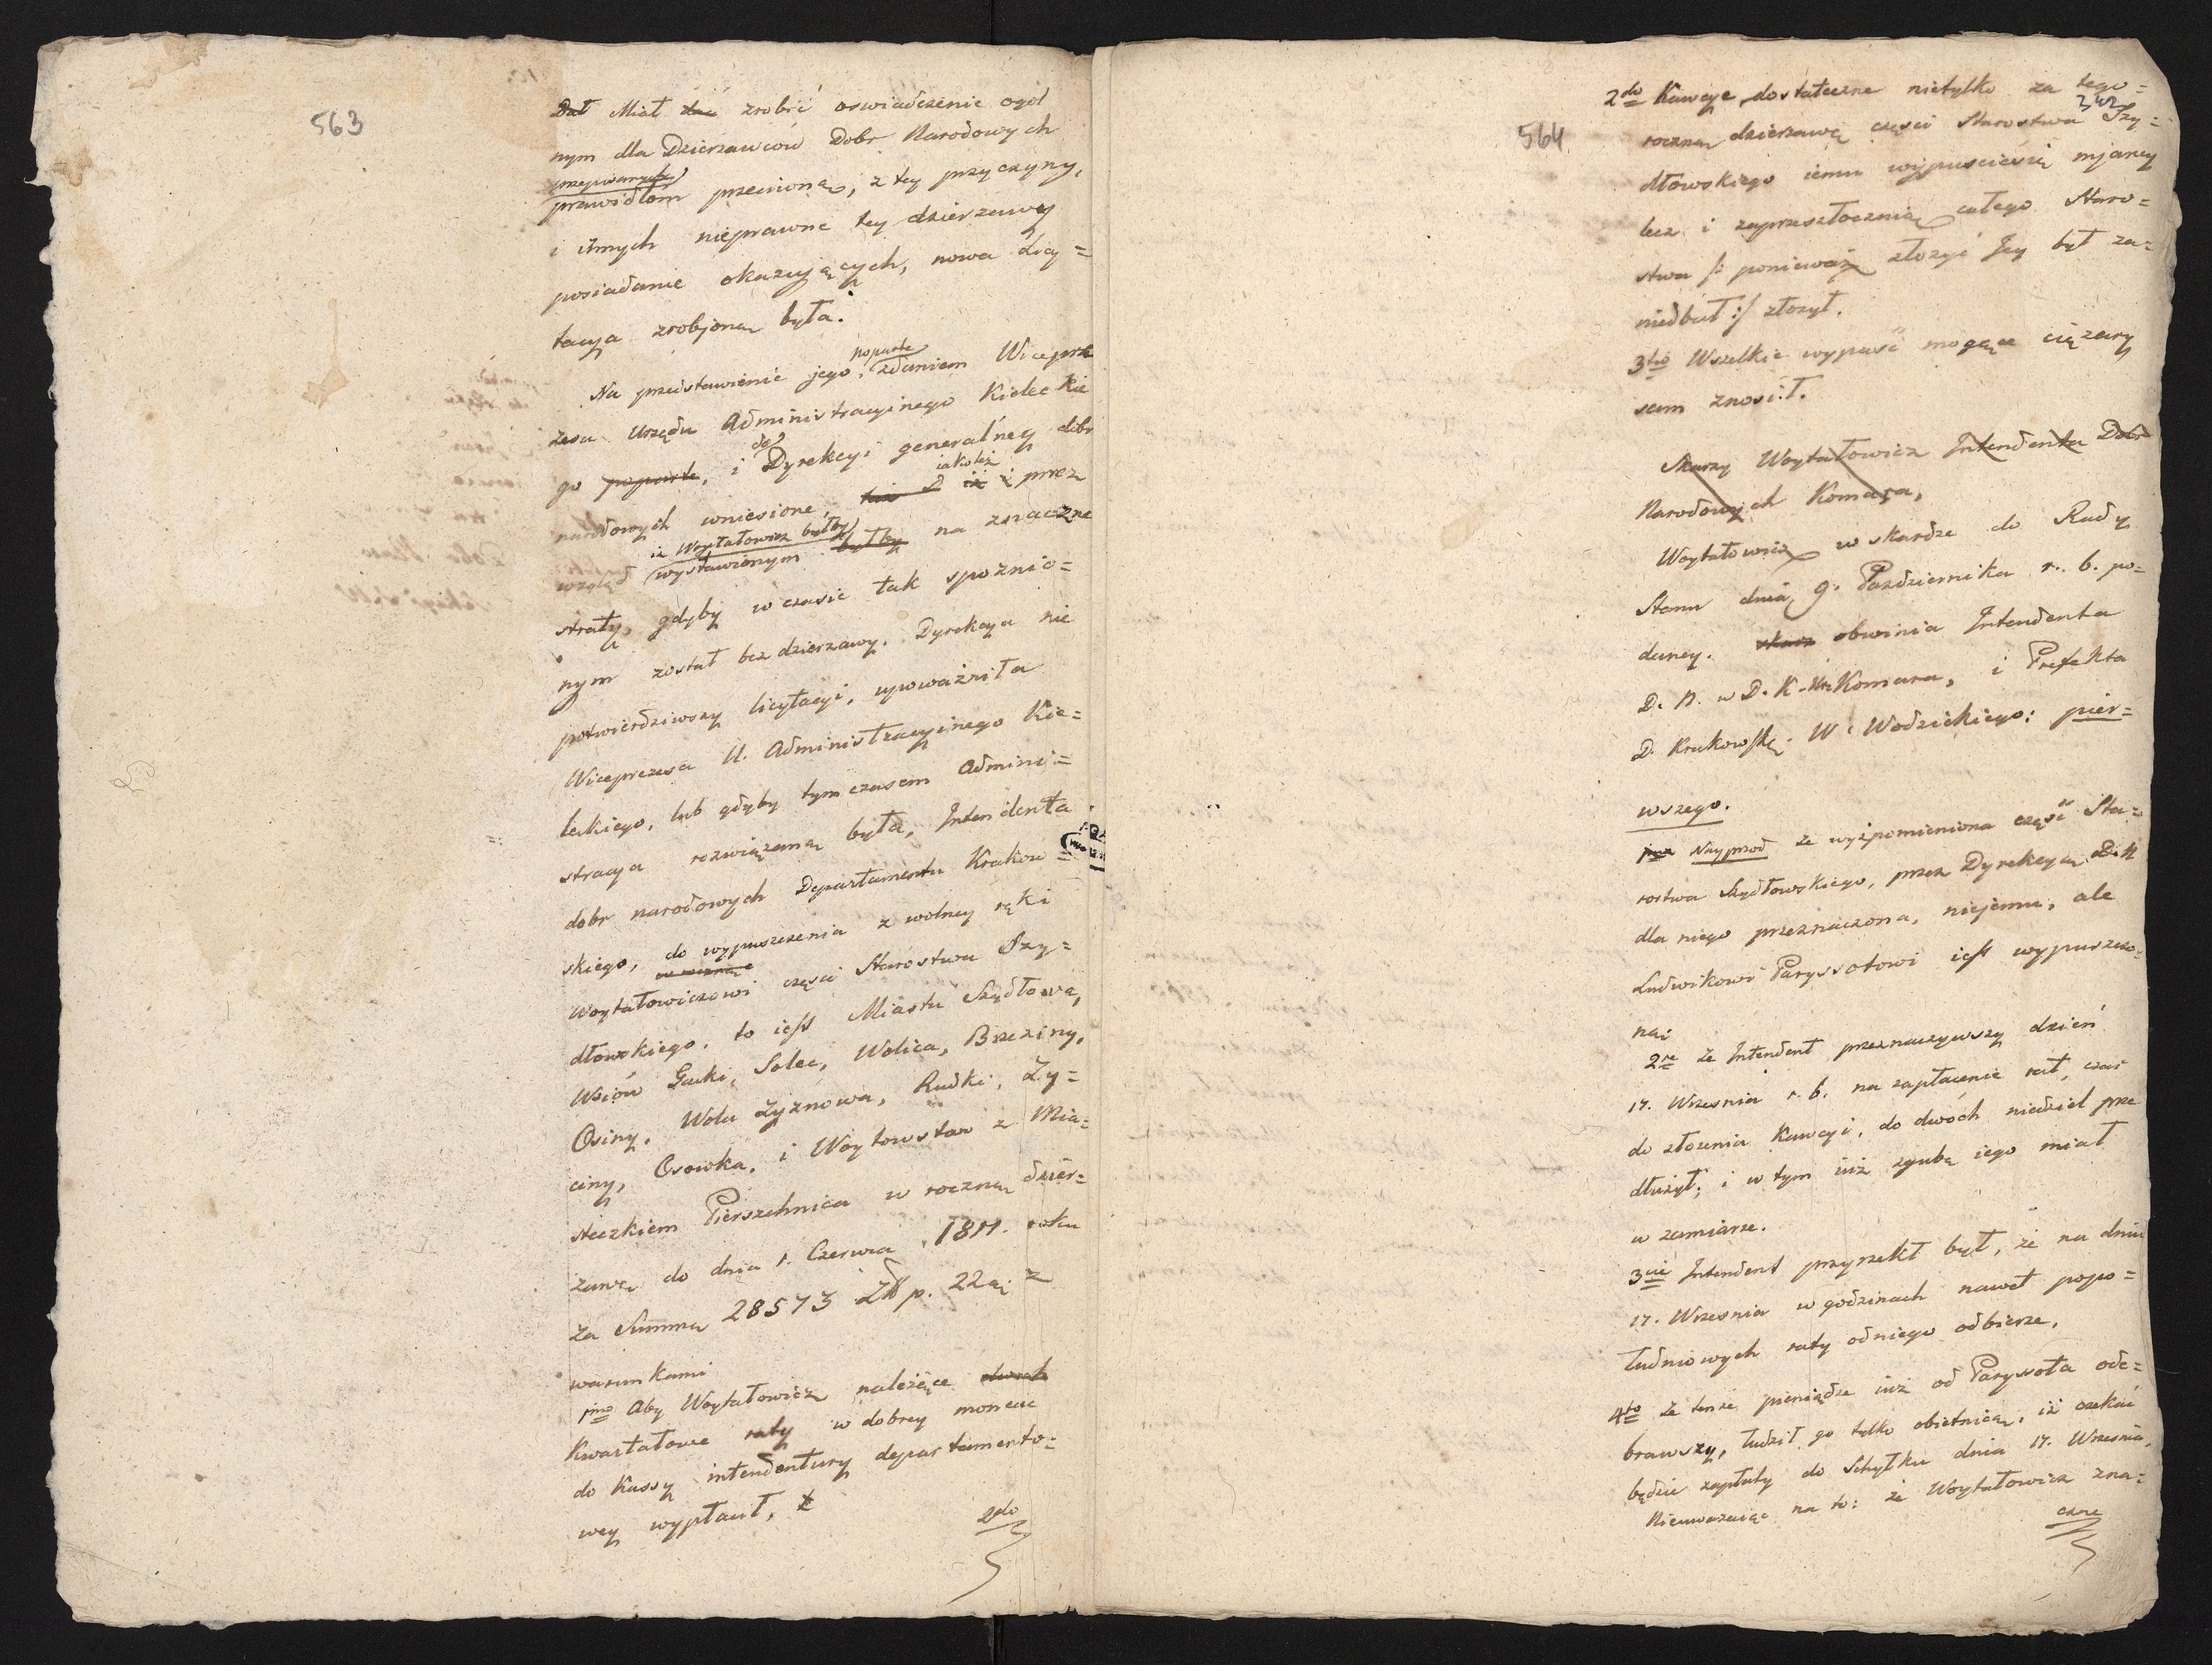 563
Dał Miał dać zrobić oswiadczenie ogol
nym dla Dzierzawców Dobr Narodowych
przepisanych
prawidłom przeciwną, z tey przyczyny,
i innych nieprawne tey dzierzawy
posiadanie okazujących, nowa Licy=
tacya zrobjoną była.
Na przedstawienie jego, zdaniem Wicepre
poparte
zesa Urzędu Administracyinego Kieleckie
go poparte, i do Dyrekcyi generalney dobr
narodowych wniesione, iakoteż iż i przez
wzgląd iż Woytałowicz byłby
wystawionym byłby na znaczne
straty, gdyby w czasie tak spoznio=
nym został bez dzierzawy. Dyrekcya nie
potwierdziwszy licytacyi, upoważniła
Wiceprezesa U. Administracyinego Kie=
leckiego, lub gdyby tym czasem admini=
stracya rozwiązaną była, Intendenta
dobr narodowych Departamentu Krakow=
skiego, do wypuszczenia z wolney ręki
Woytałowiczowi części Starostwa Szy=
dłowskiego, to iest Miasta Szydłowa,
Wsiów Gacki, Solec, Wolica, Brzeziny,
Osiny, Wola Zyznowa, Rudki, Zy=
ciny, Osowka, i Woytowstow z Mia=
steczkiem Pierzchnica w roczną dzier=
zawę do dnia 1. Czerwca 1811. roku
za Summę 28573 Zł p. 22 z
warunkami
1mo Aby Woytałowicz należące dwoch
Kwartałowe raty w dobrey monecie
do Kassy intendentury departamento=
wey wypłacił, z
2do
564
342
2do Kaucye dostateczne nietylko za tego=
roczną dzierzawę części Starostwa Szy=
dłowskiego iemu wypuscićsię mjaney
lecz i zaprzeszłoczną całego Staro=
stwa /: ponieważ złożyć Jey był za=
niedbał :/ złożył.
3tio Wszelkie wypaść mogące ciężary
sam znosił.
Skarzy Woytałowicz Intendenta Dobr
Narodowych Komara,
Woytałowicz w skardze do Rady
Stanu dnia 9. Pazdziernika r. b. po=
daney. skarz obwinia Intendenta
D. N. w D. K. Komara, i Prefekta
D. Krakowskg. W. Wodzickiego: pier=
wszego.
1mo Nayprzod że wyżpomieniona część Sta=
rostwa Szydłowskiego, przez Dyrekcyą D. N
dla niego przeznaczona, niejemu, ale
Ludwikowi Paryssotowi iest wypuszczo=
na;
2re że Intendent przeznaczywszy dzień
17. Wrzesnia r. b. na zapłacenie rat, czas
do złożenia Kaucyi, do dwóch niedziel prze
dłużył; i w tym iuż zgubę iego miał
w zamiarze.
3cie Intendent przyrzekł był, że na dniu
17. Wrzesnia w godzinach nawet popo=
łudniowych raty odniego odbierze.
4to że tenże pieniądze iuż od Paryssota ode=
brawszy, łudził go tylko obietnicą, iż czekać
będzie zapłaty do Schyłku dnia 17. Wrzesnia,
Nieuważaiąc na to: że Woytałowicz zna=
czne